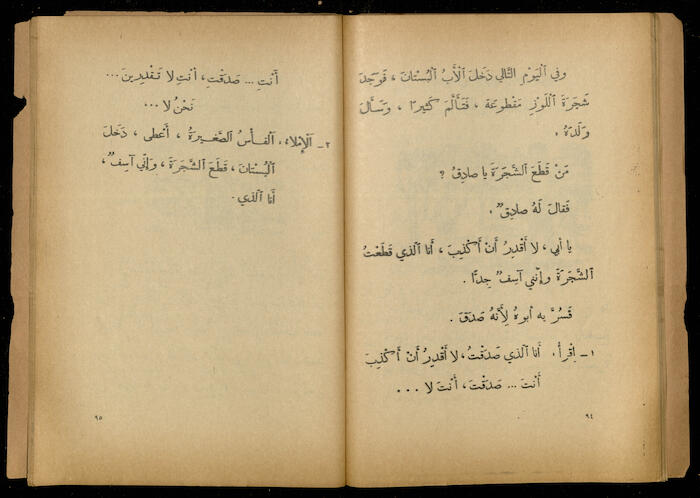 وَفي ٱلْيَوْمِ التَّالي دَخَلَ ٱلْأَبُ ٱلبُسْتانَ ، فَوَجَدَ
شَجَرَةَ ٱللَّوْزِ مَقْطوعَة ، فَتَأَلَّمَ كَثيرًا ، وَسَأَلَ
وَلَدَهُ .
مَنْ قَطَعَ الشَّجَرَةَ يا صادِقُ ؟
فَقالَ لَهُ صادِقٌ .
يا أَبي ، لا أَقْدِرُ أَنْ أَكْذِبَ ، أَنا ٱلَّذي قَطَعْتُ
ٱلشَّجَرَةَ وَإِنَّني آسِفٌ جِدًّا .
فَسُرَّ بِهِ أَبوهُ لِأَنَّهُ صَدَقَ .
١ – اِقْرأْ . أَنا ٱلَّذي صَدَقْتُ ، لا أَقْدِرُ أَنْ أَكْذِبَ
أَنْتَ ... صَدَقْتَ ، أَنْتَ لا ...
٩٤
أَنْتِ ... صَدَقْتِ ، أَنْتِ لا تَقْدِرينَ ...
نَحْنُ لا ...
٢ – اَلْإِمْلاءُ . اَلْفَأْسُ الصَّغيرَةُ ، أَعْطى ، دَخَلَ
ٱلبُسْتانَ ، قَطَعَ الشَّجَرَةَ ، وَإِنّي آسِفٌ ،
أَنا ٱلَّذي .
٩٥